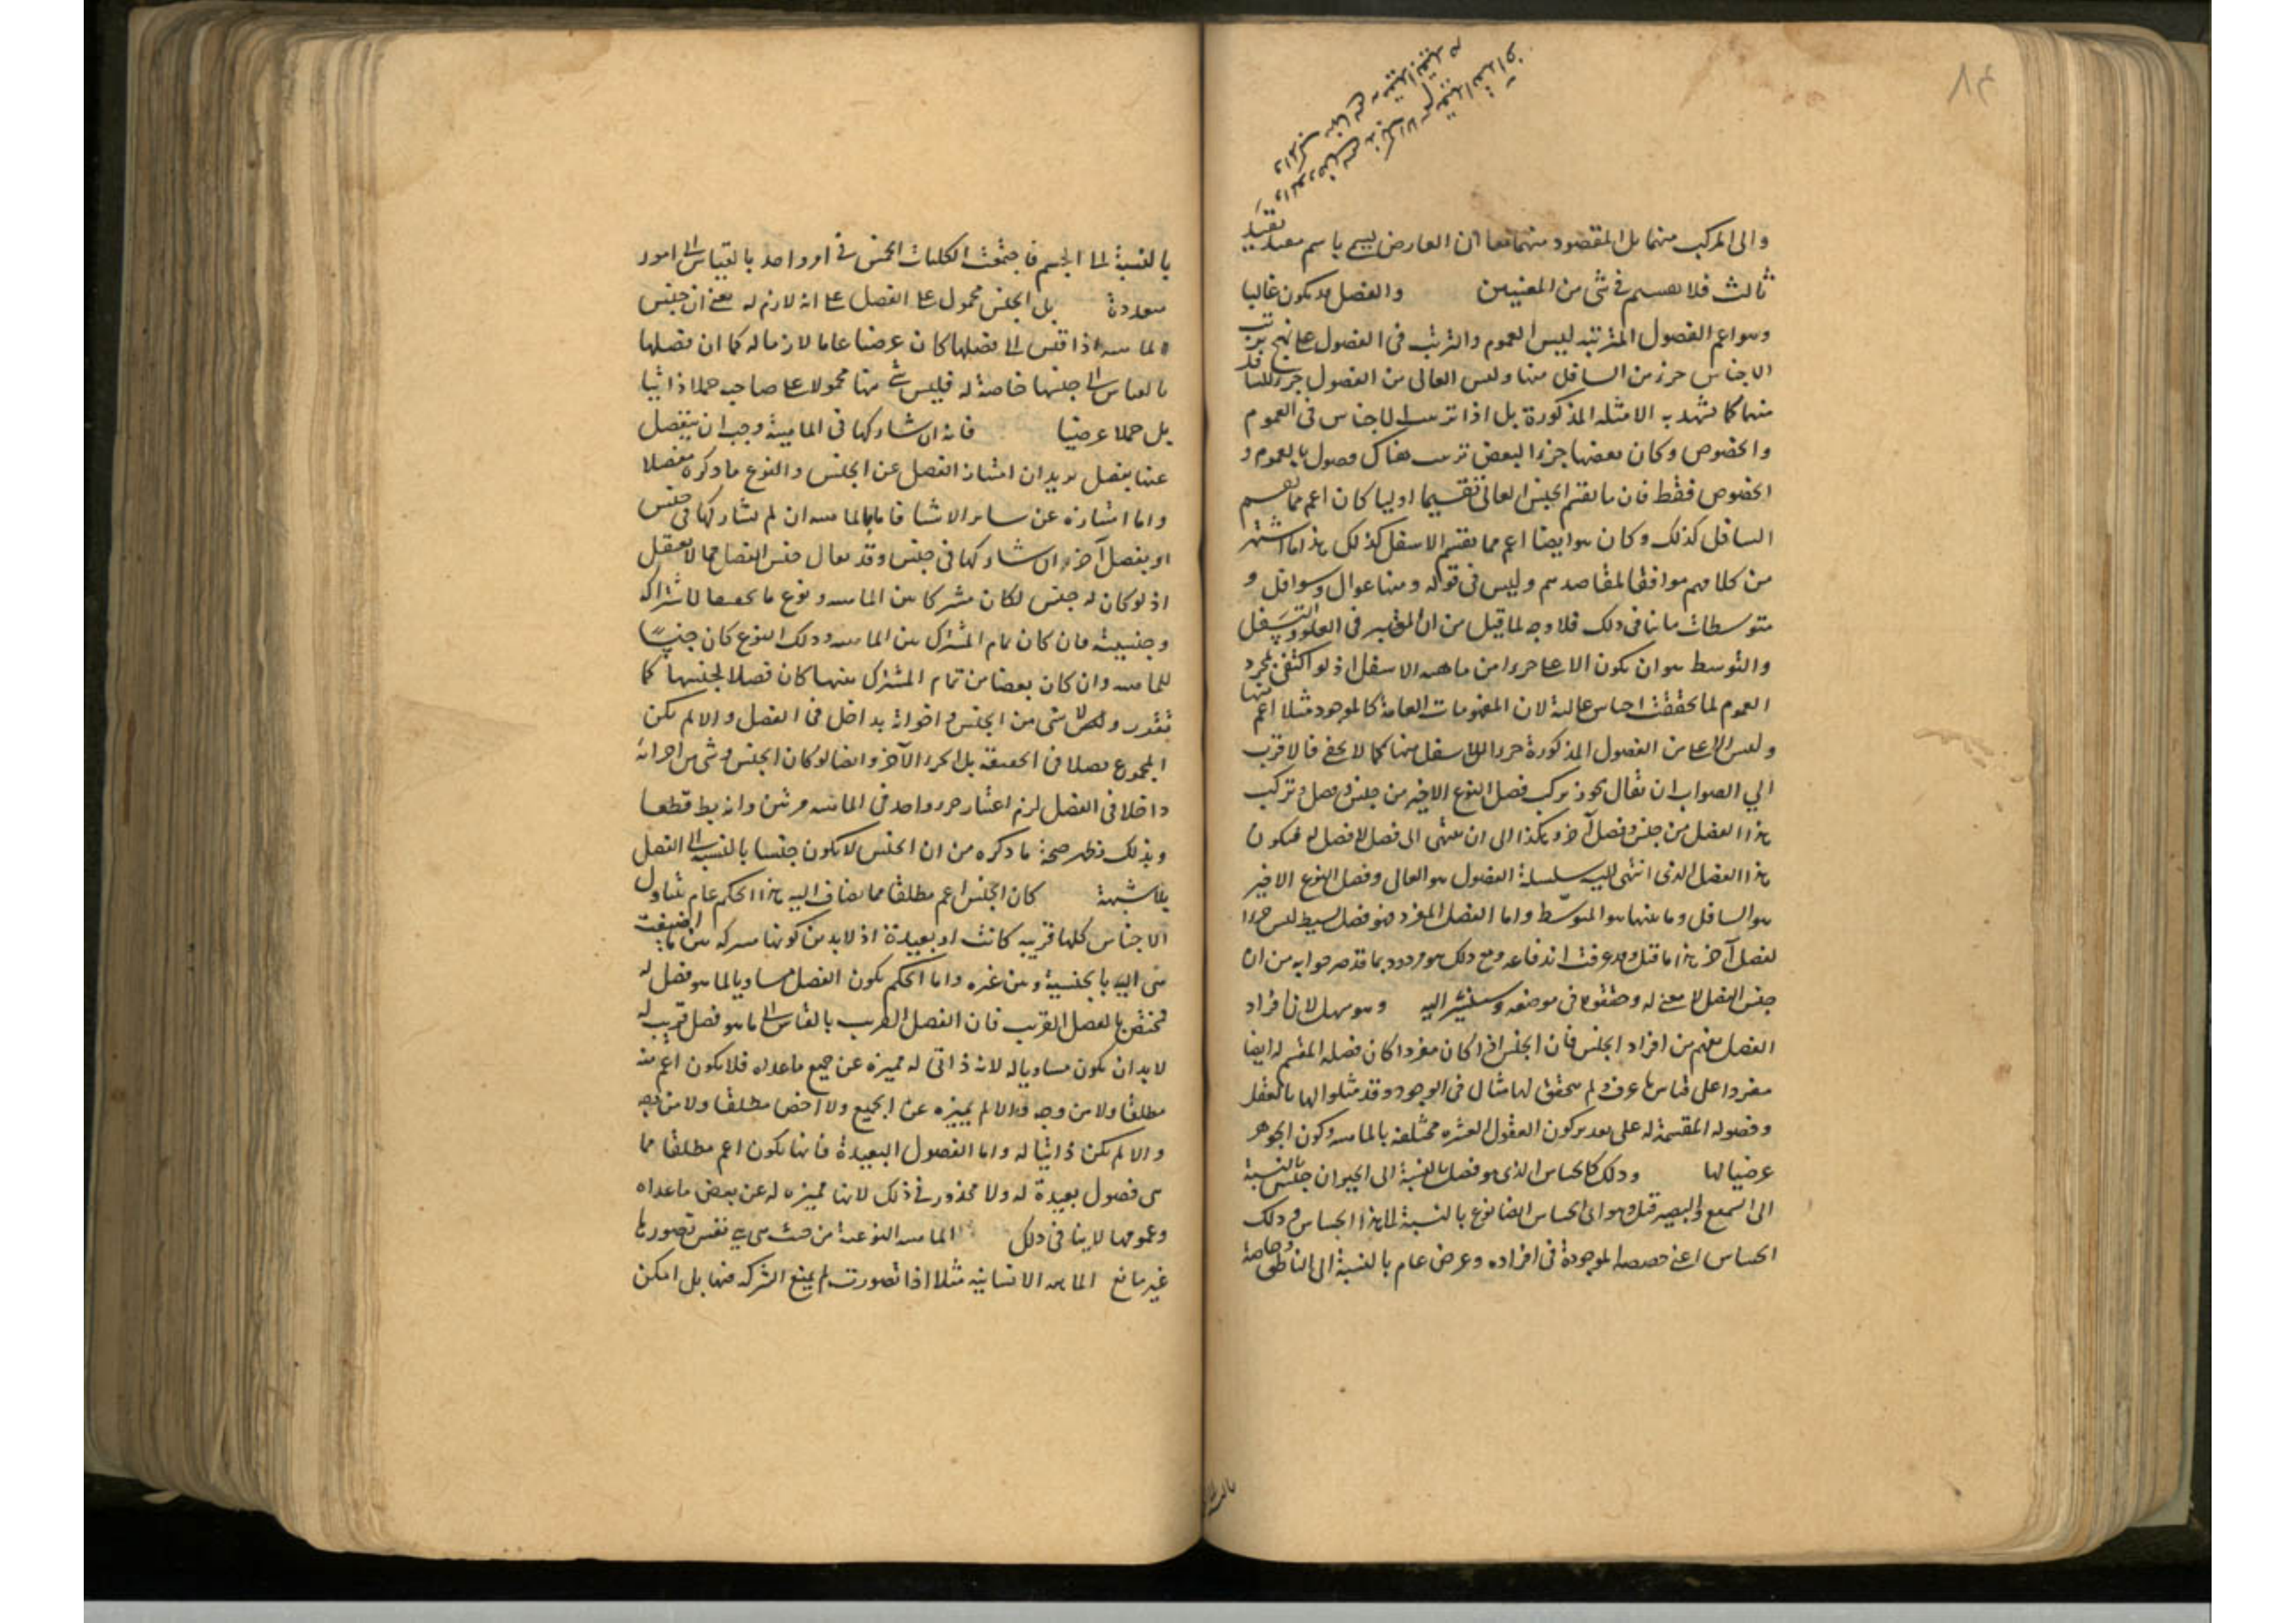 والى المركب منهما بل المقصود منهما معا ان العارض يسمى باسم مفيد تقييد
ثالث فلا ينقسم فى شئ من المعنيين والفصل قد يكون عاليا
وهو اعم الفصول المترتبة ليس العموم والترتب فى الفصول على نهج ترتب
الاجناس جزء من السافل منها وليس العالى من الفصول جزء للسافل
منها كما يشهد به الامثله المذكورة بل اذا ترتبت الاجناس فى العموم
والخصوص وكان بعضها جزءا لبعض ترتبت هناك فصول بالعموم و
الخصوص فقط فان ما يقسم الجنس العالى تقسيما اوليا كان اعم مما يقسم
السافل كذلك وكان هو ايضا اعم مما يقسم الاسفل كذلك هذا ما اشتهر
من كلامهم موافقا لمقاصدهم وليس فى قوله ومنها عوال وسوافل و
متوسطات ما ينافى ذلك فلا وجه لما قيل من ان المعتبر فى العلو والتسفل
والتوسط هو ان يكون الاعلى جزءا من ماهية الاسفل اذ لو اكتفى بمجرد
العموم لما تحققت اجناس عالية لان المفهومات العامة كالموجود مثلا اعم منها
وليس الاعلى من الفصول المذكورة جزءا للاسفل منها كما لا يخفى فالاقرب
الى الصواب ان يقال يجوز تركب فصل النوع الاخير من جنس وفصل وتركب
هذا الفصل من جنس وفصل آخر وهكذا الى ان ينتهى الى فصل لا فصل له فيكون
هذا الفصل الذى انتهى اليه سلسلة الفصول هو العالى وفصل النوع الاخير
هو السافل وما بينهما هو المتوسّط واما الفصل المفرد فهو فصل بسيط ليس جزءا
لفصل آخر هذا ما قيل وقد عرفت اندفاعه ومع ذلك هو مردود بما قد صرحوا به من ان
جنس الفصل لا معنى له وحققوه فى موضعه وسنشير اليه وهو سهل لان افراد
الفصل تعلم من افراد الجنس فان الجنس اذا كان مفردا كان فصله المقسم له ايضا
مفردا على قياس ما عرفت ولم يتحقق لها مثال فى الوجود وقد مثلوا لها بالعقل
وفصوله المقسمة له على تقدير كون العقول العشره مختلفة بالماهية وكون الجوهر
عرضيا لها وذلك كالحساس الذى هو فصل بالنسبة الى الحيوان جنس بالنسبة
الى السميع والبصير قيل وهو اى الحساس ايضا نوع بالنسبة الى هذا الحساس وذلك
الحساس اعنى حصصه الموجودة فى افراده وعرض عام بالنسبة الى الناطق وخاصة
بالنسبة الى الجسم فاجتمعت الكليات الخمس فى امر واحد بالقياس الى امور
متعددة بل الجنس محمول على الفصل على انه لازم له يعنى ان جنس
الماهية اذا قيس الى فصلها كان عرضا عاما لازما له كما ان فصلها
بالقياس الى جنسها خاصة له فليس شئ منهما محمولا على صاحبه حملا ذاتيا
بل حملا عرضيا فانه ان شاركها فى الماهية وجب ان ينفصل
عنها بفصل يريد ان امتياز الفصل عن الجنس والنوع ما ذكره مفصلا
واما امتيازه عن سائر الاشيا فاما بالماهية ان لم يشاركها فى جنس
او بفصل آخر ان شاركها فى جنس وقد يقال جنس الفصل مما لا يعقل
اذ لو كان له جنس لكان مشتركا بين الماهية ونوع ما تحقيقا لاشتراكه
وجنسيته فان كان تمام المشترك بين الماهية وذلك النوع كان جنسًا
للماهية وان كان بعضا من تمام المشترك بينهما كان فصلا لجنسها كما
تقرر ولا شئ من الجنس واجزائه بداخل فى الفصل والا لم يكن
المجموع فصلا فى الحقيقة بل الجزء الآخر وايضا لو كان الجنس او شئ من اجزائه
داخلا فى الفصل لزم اعتبار جزء واحد فى الماهية مرتين وانه بط قطعا
وبذلك يظهر صحة ما ذكره من ان الجنس لا يكون جنسا بالنسبة الى الفصل
بلا شبهة كان الجنس اعم مطلقا مما يضاف اليه هذا الحكم عام يتناول
الاجناس كلها قريبه كانت او بعيدة اذ لا بد من كونها مشتركه بين ما اضيفت
هى اليه بالجنسية وبين غيره واما الحكم بكون الفصل مساويا لما هو فصل له
فمختص بالفصل القريب فان الفصل القريب بالقياس الى ما هو فصل قريب له
لا بد ان يكون مساويا له لانه ذاتى له مميزه عن جميع ماعداه فلا يكون اعم منه
مطلقا ولا من وجه والا لم يميزه عن الجميع ولا اخص مطلقا ولا من وجه
والا لم يكن ذاتيا له واما الفصول البعيدة فانها تكون اعم مطلقا مما
هى فصول بعيدة له ولا محذور فى ذلك لانها مميزه له عن بعض ماعداه
وعمومها لا ينافى ذلك الماهية النوعية من حيث هى هى نفس تصورها
غير مانع الماهية الانسانيه مثلا اذا تصورت لم يمنع الشركه فيها بل امكن